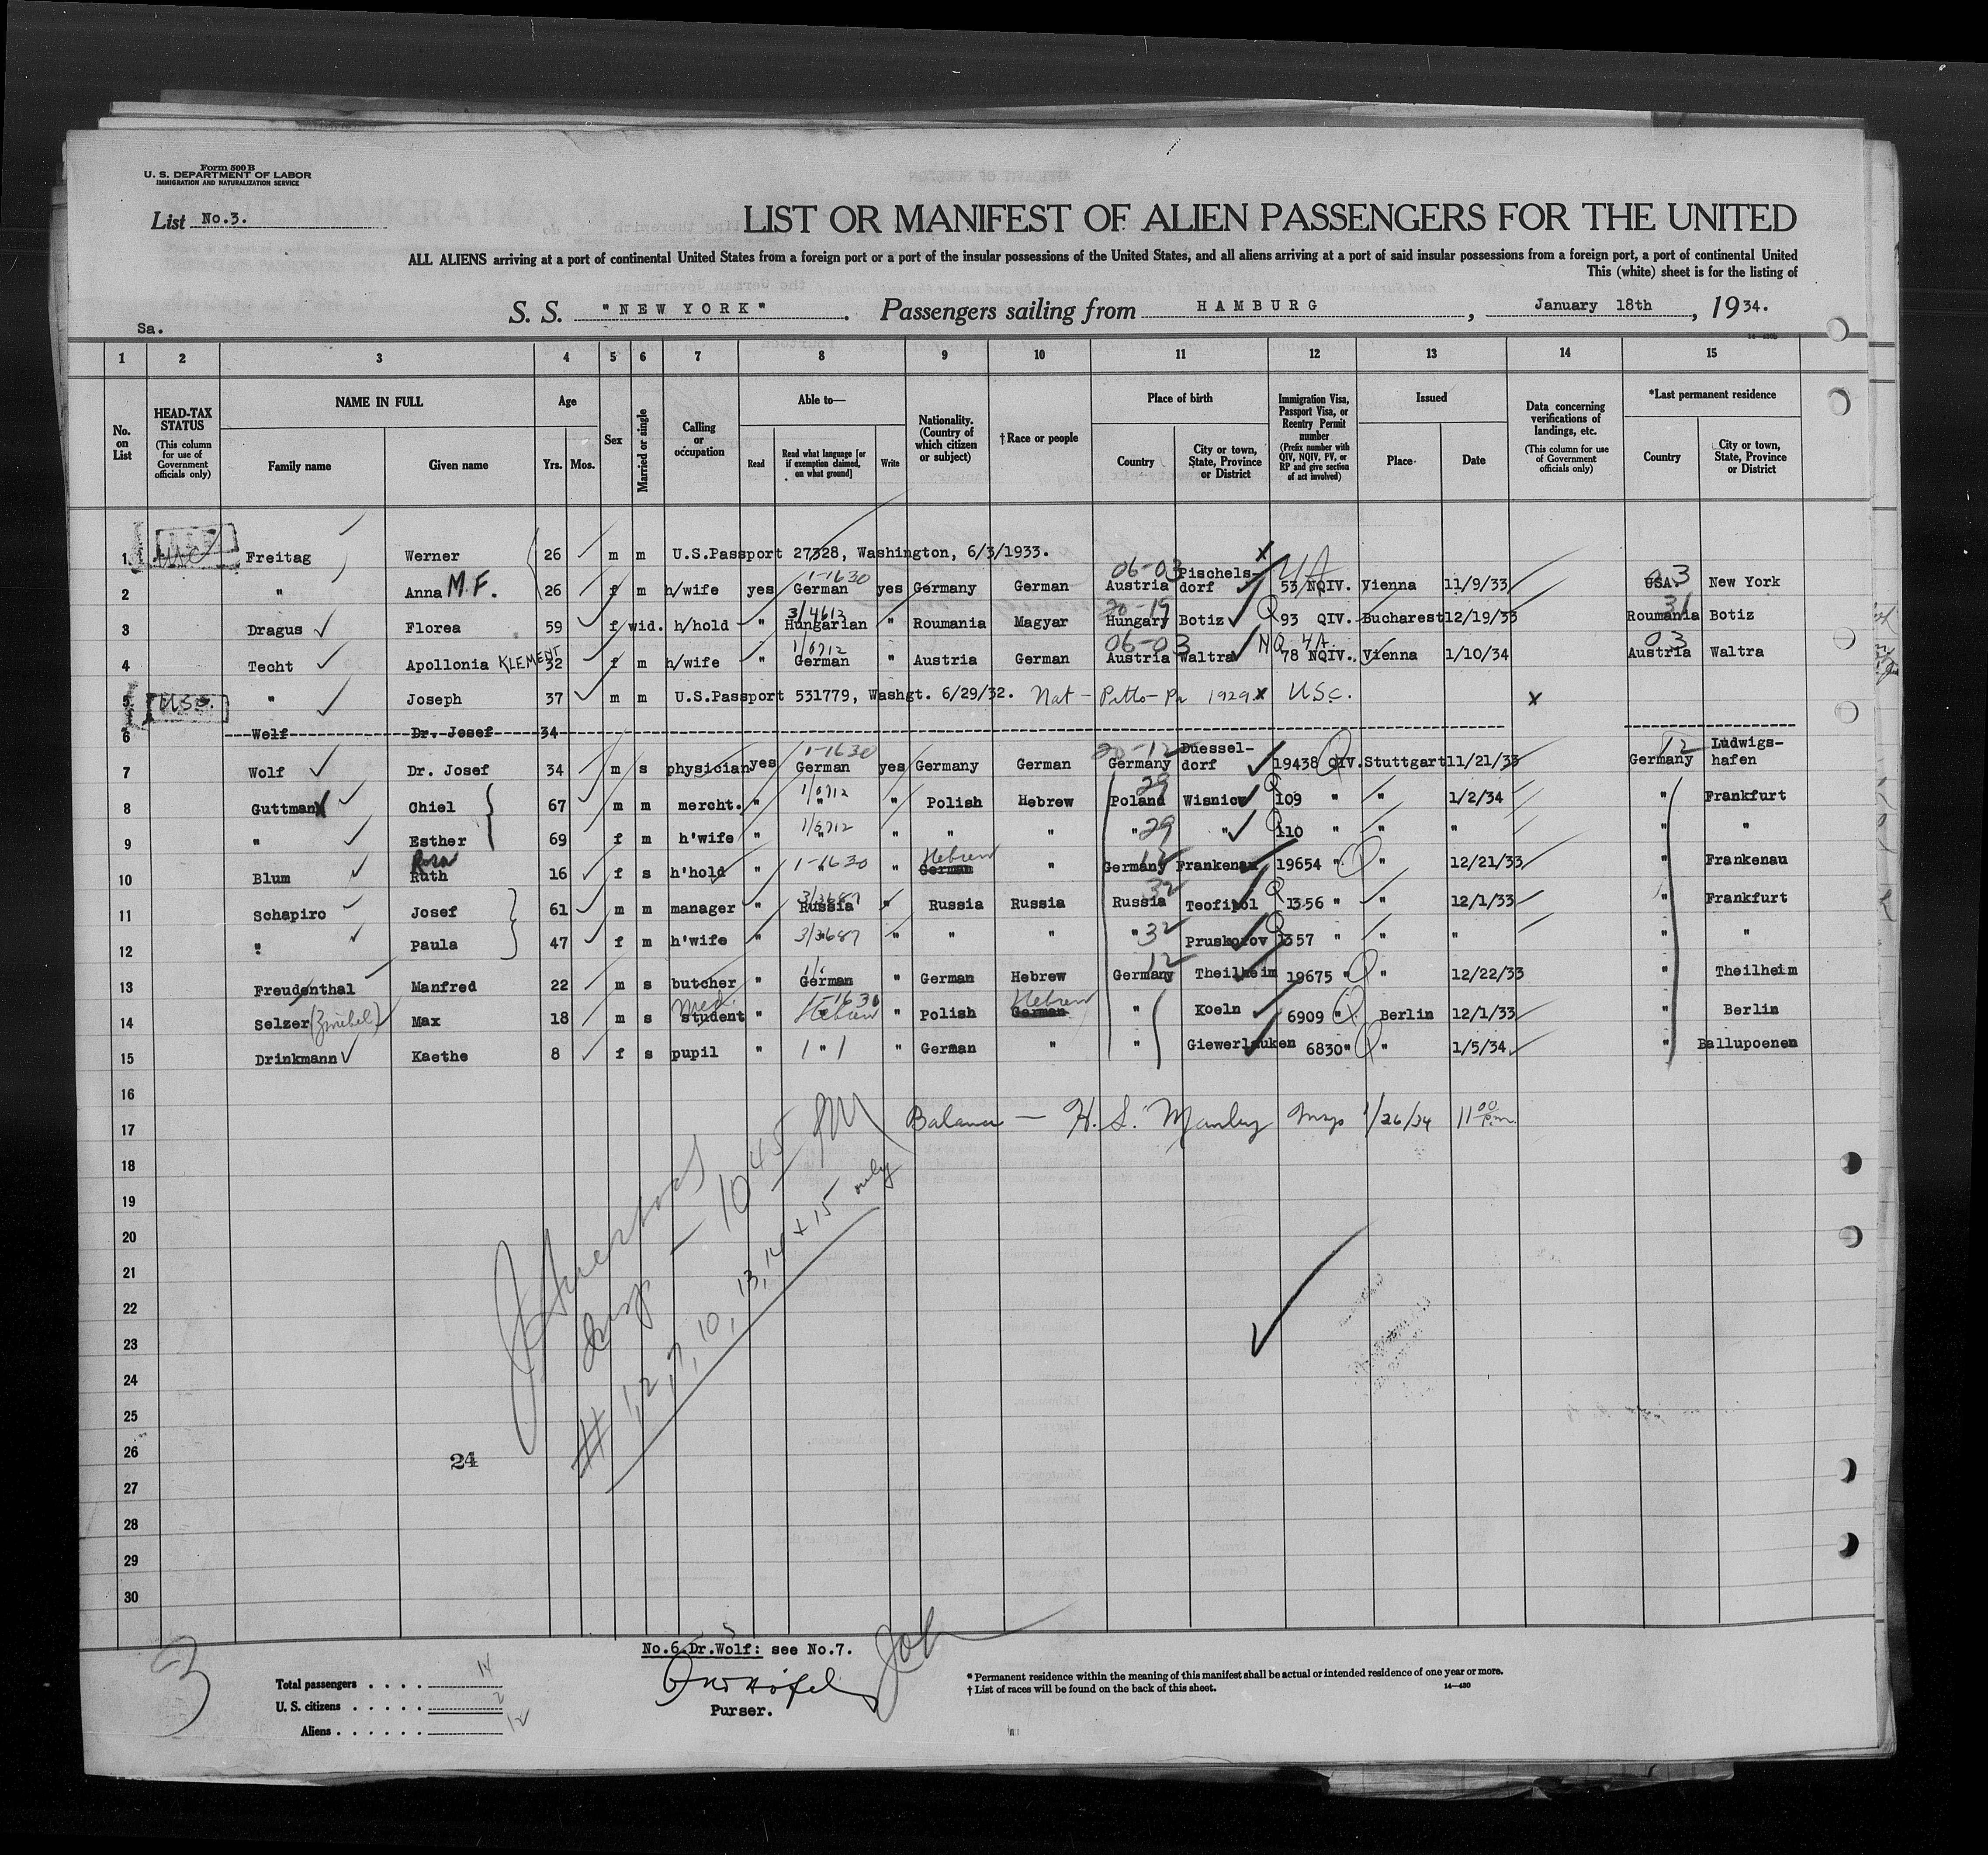 Form 500 B
U. S. DEPARTMENT OF LABOR
IMMIGRATION AND NATURALIZATION SERVICE
List No.3.
LIST OR MANIFEST OF ALIEN PASSENGERS FOR THE UNITED
ALL ALIENS arriving at a port of continental United States from a foreign port or a port of the insular possessions of the United States, and all aliens arriving at a port of said insular possessions from a foreign port, a port of continental United
This (white) sheet is for the listing of
S. S. "NEW YORK". Passengers sailing from HAMBURG, January 18th, 1934.
Sa.
14—430b
1 2 3 4 5 6 7 8 9 10 11 12 13 14 15
No. on List
HEAD-TAX STATUS (This column for use of Government officials only)
NAME IN FULL
Family name Given name
Age
Yrs. Mos.
Sex
Married or single
Calling or occupation
Able to—
Read Read what language [or if exemption claimed, on what ground] Write
Nationality. (Country of which citizen or subject)
†Race or people
Place of birth
Country City or town, State, Province or District
Immigration Visa, Passport Visa, or Reentry Permit number (Prefix number with QIV, NQIV, PV, or RP and give section of act involved)
Issued
Place Date
Data concerning verifications of landings, etc. (This column for use of Government officials only)
*Last permanent residence
Country City or town, State, Province or District
1 USC Freitag Werner 26 m m U.S.Passport 27328, Washington, 6/3/1933. x
2 " Anna M.F. 26 f m h/wife yes German 1-1630 yes Germany German 06-03 Austria Pischels-dorf 4A 53 NQIV. Vienna 11/9/33 USA. 03 New York
3 Dragus Florea 59 f wid. h/hold " 3/4612 Hungarian " Roumania Magyar 20-19 Hungary Botiz Q 93 QIV. Bucharest 12/19/33 31 Roumania Botiz
4 Techt Apollonia KLEMENT 32 f m h/wife " 1/6712 German " Austria German 06-03 Austria Waltra NQ 4A 78 NQIV. Vienna 1/10/34 03 Austria Waltra
5 USC. " Joseph 37 m m U.S.Passport 531779, Washgt. 6/29/32. Nat - Pitts-Pa 1929 x USC. x
6 Wolf Dr. Josef 34
7 Wolf Dr. Josef 34 m s physician yes 1-1630 German yes Germany German 20-12 Germany Duessel-dorf 19438 QIV. Stuttgart 11/21/33 12 Germany Ludwigs-hafen
8 Guttman Chiel 67 m m mercht. " 1/6712 " " Polish Hebrew 29 Poland Wisnicz Q 109 " " 1/2/34 " Frankfurt
9 " Esther 69 f m h'wife " 1/6712 " " " " " 29 " Q 110 " " " " "
10 Blum Rosa Ruth 16 f s h'hold " 1-1630 " " Hebrew German " 12 Germany Frankenau 19654 " Q " 12/21/33 " Frankenau
11 Schapiro Josef 61 m m manager " 3/3687 Russia " Russia Russia 32 Russia Teofipol Q 1356 " " 12/1/33 " Frankfurt
12 " Paula 47 f m h'wife " 3/3687 " " " " " 32 Pruskorov Q 1357 " " " " "
13 Freudenthal Manfred 22 m s butcher " German " German Hebrew 12 Germany Theilheim 19675 " Q " 12/22/33 " Theilheim
14 Selzer Max 18 m s Med. student " 15-1630 Hebrew " Polish Hebrew German " Koeln 6909 " Q Berlin 12/1/33 " Berlin
15 Drinkmann Kaethe 8 f s pupil " 1 " 1 " German " " Giewerlauken 6830" Q " 1/5/34 " Ballupoenen
16
17 Balance — H. S. Manley Insp 1/26/34 11 00 p.m.
18
19
20
21
22
23
24
25
26
27
28
29
30
Insp — 10 45 PM
# 1, 2, 7, 10, 13, 14 + 15 only
24
3
No.6 Dr.Wolf: see No.7.
Purser.
Total passengers . . . . 14
U. S. citizens . . . . . 2
Aliens . . . . . . 12
* Permanent residence within the meaning of this manifest shall be actual or intended residence of one year or more.
† List of races will be found on the back of this sheet.
14—430